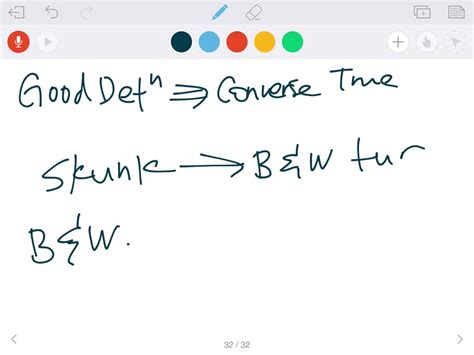 Good Defⁿ ⇒ Converse True
Skunk → B&W fur
B&W.
32 / 32